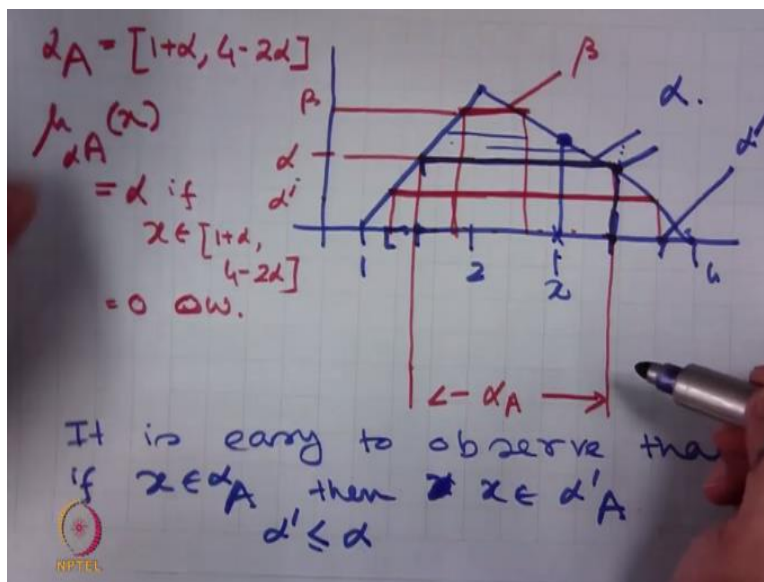 αA = [1+α, 4-2α]
μαA(x)
= α if
x ∈ [1+α,
4-2α]
= 0 OW.
β
α
α'
β
α.
α'
1
2
x
4
<- αA ->
It is easy to observe tha
if x ∈ αA then x ∈ α'A
α' ≤ α
NPTEL